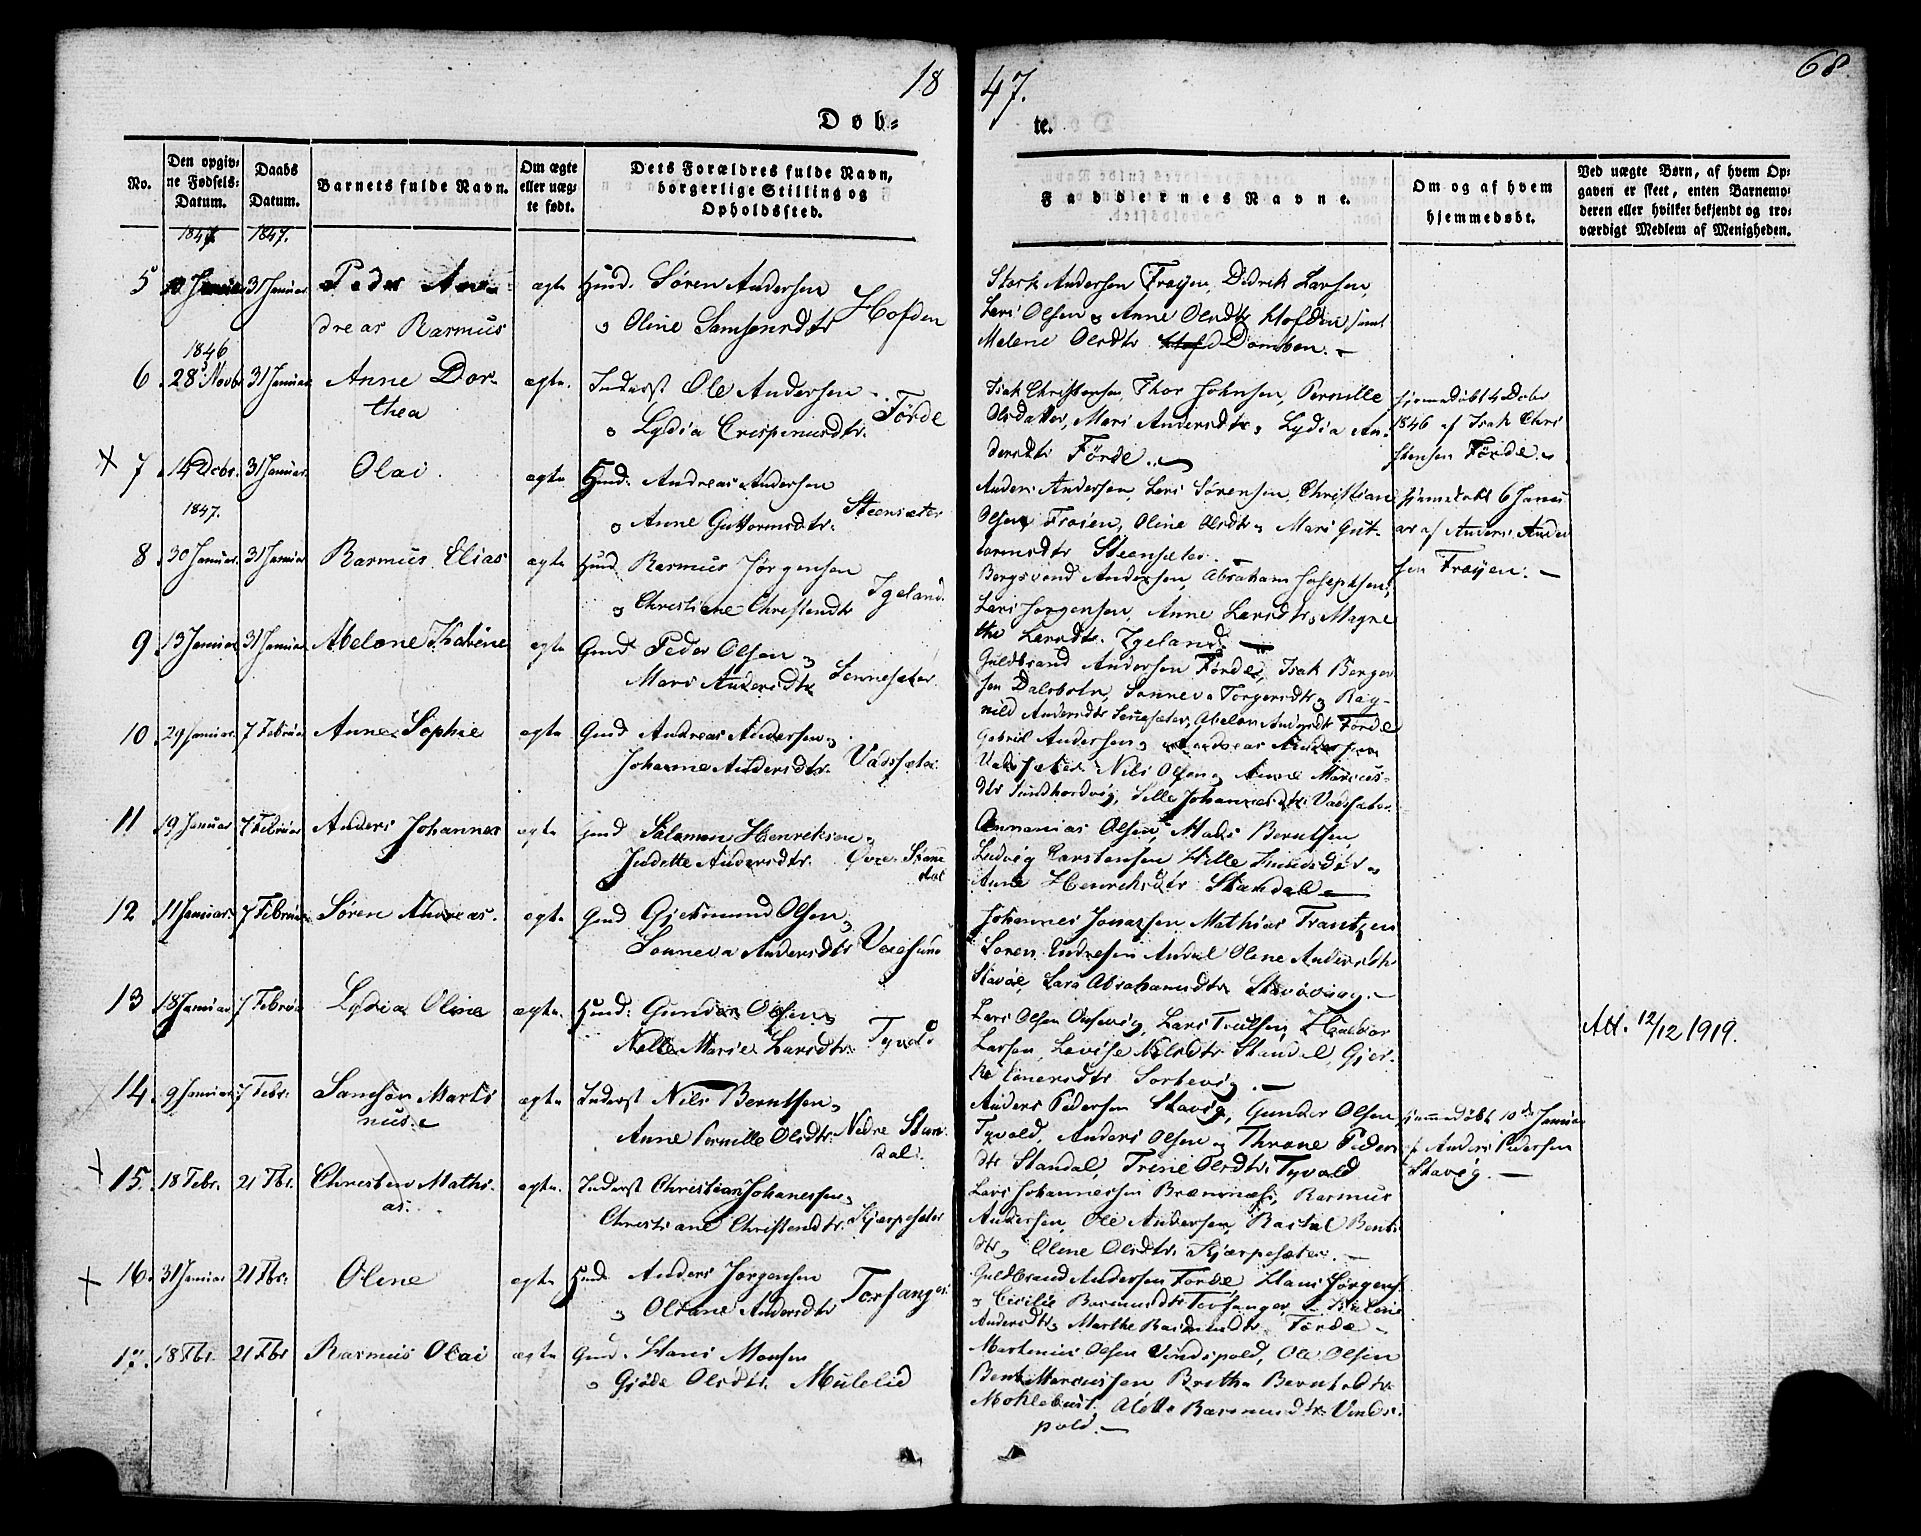 18
47.
68
Døb-
te.
No.
Den opgiv-
ne Fødsels-
Datum.
Daabs
Datum.
Barnets fulde Navn.
Om ægte
eller uæg-
te født.
Dets Forældres fulde Navn,
borgerlige Stilling og
Opholdssted.
Faddernes Navne.
Om og af hvem
hjemmedøbt.
Ved uægte Børn, af hvem Op-
gaven er skeet, enten Barnemo-
deren eller hvilket bekjendt og tro-
værdigt Medlem af Menigheden.
1847 1847.
5 Januar 31 Januar Peder An-
dreas Rasmus
ægte Huusmd. Søren Andersen
" Oline Samsonsdtr Hofden
Andersen Frøyen, Didrik Larsen,
Lars Olsen & Anne Olsdtr Hofden samt
Malene Olsdtr Domben. -
1846
6. 28 Novbr 31 Januar Anne Dor-
thea
ægte. Inderst Ole Andersen
" Lydia Crispinusdtr. Førde
Isak Christensen, Thor Johnsen, Pernille
Olsdatter, Mari Andersdtr, Lydia An-
dersdtr Førde.
hjemmedøbt 4 Decbr
1846 af Isak Chri
stensen Førde.
7. 14 Decbr. 31 Januar Olai.
ægte Huusmd. Andreas Andersen
" Anne Guttormsdtr. Steensæter
Anders Andersen, Lars Sørensen, Christian
Olsen Frøien, Oline Olsdtr & Mari Gut-
tormsdtr Steensæter.
hjemmedøbt 6 Janu
ar af Anders Ander
sen Frøyen. -
1847.
8. 30 Januar. 31 Januar. Rasmus Elias
ægte Huusmd Rasmus Jørgensen
" Christiane Christensdtr Igeland.
Bergsvend Andersen, Abraham Josephsen,
Lars Jørgensen, Anne Larsdtr & Magne
the Larsdtr. Igeland.
9. 13 Januar 31 Januar Abelone Kathrine
ægte Gmd Peder Olsen &
Mari Andersdtr Sennesæter
Guldbrand Andersen Førde, Isak Berger
sen Dalsbotn, Sonneva Torgersdtr & Rag-
nild Andersdtr Sennesæter, Abelon Andersdtr Førde
10. 29 Januar. 7 Februar Anne Sophie
ægte Gmd Andreas Andersen &
Johanne Andersdtr. Vadsæter
Gabriel Andersen & Andreas Andersen
Vadsæter. Nils Olsen & Anne Marcus-
dtr Sundhordvig, Sille Johannesdtr Vadsæter
11. 19 Januar 7 Februar Anders Johannes
ægte Gmd Salamon Henriksen &
Judette Andersdtr. Øvre Stan
dal
Annanias Olsen, Mads Berntsen,
Ludvig Carstensen
Anne Henriksdtr Standal -
12. 11 Januar. 7 Februar Søren Andreas.
ægte Gmd Gjermund Olsen &
Sonneva Andersdtr
Johannes Jonassen Mathias Frantzen
Søren Andresen Olene Andersdtr
Stavøe, Lara Abrahamsdtr
13. 18 Januar 7 Februar Lydia Oline
ægte. Huusmd. Gunder Olsen &
Nelle Marie Larsdtr. Tyvold
Lars Olsen Ousevig, Lars Trulsen, Haldor
Larsen, Lovise Nilsdtr Standal, Gjer-
Sørbevig. -
Att. 12/12 1919.
14. 9 Januar 7 Febr. Samson Marti
nus.
ægte Inderst Nils Berntsen &
Anne Pernille Olsdtr. Nedre Stan-
dal.
Anders Pedersen Stavøg, Gunder Olsen
Tyvold, Anders Olsen & Throne Peder
dtr Standal, Trine Olsdtr. Tyvold
hjemmedøbt 10de Januar
af Anders Pedersen
Stavøg. -
15. 18 Febr. 21 Fbr. Christen Mathi-
as.
ægte. Inderst Christian Johannessen &
Christiane Christensdtr. Kjærpesæter
Lars Johannessen Bremnæs, Rasmus
Andersen, Ole Andersen, Bents
dtr & Olene Olsdtr. Kjærpesæter. -
16. 31 Januar 21 Fbr. Olene
ægte Huusmd. Anders Jørgensen
" Oliane Andersdtr Torfanger
Guldbrand Andersen Førde, Hans Jørgens.
& Cicilie Rasmusdtr Torfanger,
Andersdtr & Marthe Rasmusdtr Førde -
17. 18 Fbr. 21 Fbr Rasmus Olai
ægte Gmd. Hans Monsen
" Gjøde Olsdtr. Mulelid
Martinus Olsen Vindspold, Ole Olsen
Bent Marcussen Brethe Berntsdtr
Møklebust. Alette Rasmusdtr Vinds-
pold. -